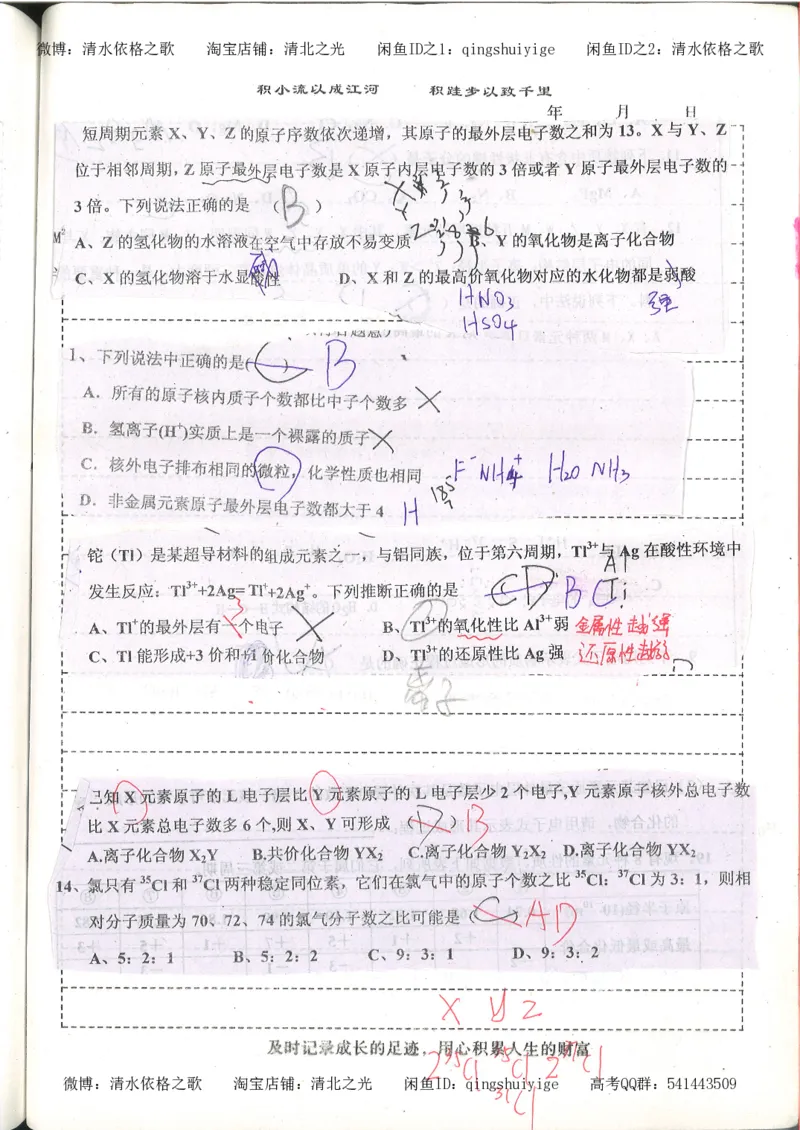 微博：清水依格之歌 淘宝店铺：清北之光 闲鱼ID之1：qingshuiyige 闲鱼ID之2：清水依格之歌
积小流以成江河 积跬步以致千里
年 月 日
短周期元素 X、Y、Z 的原子序数依次递增，其原子的最外层电子数之和为 13。X 与 Y、Z
位于相邻周期，Z 原子最外层电子数是 X 原子内层电子数的 3 倍或者 Y 原子最外层电子数的
3 倍。下列说法正确的是 （ B ）
A、Z的氢化物的水溶液在空气中存放不易变质 B、Y 的氧化物是离子化合物
C、X 的氢化物溶于水显酸性 D、X 和 Z 的最高价氧化物对应的水化物都是弱酸
HNO3 强
HSO4
1、下列说法中正确的是( C ) B
A．所有的原子核内质子个数都比中子个数多 ×
B．氢离子(H+)实质上是一个裸露的质子 ×
C．核外电子排布相同的微粒，化学性质也相同 F- NH4+ H2O NH3
D．非金属元素原子最外层电子数都大于 4 H
铊（Tl）是某超导材料的组成元素之一，与铝同族，位于第六周期，Tl3+与 Ag 在酸性环境中
发生反应：Tl3++2Ag= Tl++2Ag+。下列推断正确的是 CD BC Al Ti
A、Tl+的最外层有一个电子 3 × B、Tl3+的氧化性比 Al3+弱 金属性越强
C、Tl 能形成+3 价和+1 价化合物 D、Tl3+的还原性比 Ag 强 还原性越弱
离子
已知 X 元素原子的 L 电子层比 Y 元素原子的 L 电子层少 2 个电子,Y 元素原子核外总电子数
比 X 元素总电子数多 6 个,则 X、Y 可形成 （ D ） B
A.离子化合物 X2Y B.共价化合物 YX2 C.离子化合物 Y2X2 D.离子化合物 YX2
14、氯只有 35Cl 和 37Cl 两种稳定同位素，它们在氯气中的原子个数之比 35Cl：37Cl 为 3：1，则相
对分子质量为 70、72、74 的氯气分子数之比可能是（ C ） AD
A、5：2：1 B、5：2：2 C、9：3：1 D、9：3：2
X Y Z
及时记录成长的足迹，用心积累人生的财富
2 35Cl 35Cl 2 37Cl
37Cl
微博：清水依格之歌 淘宝店铺：清北之光 闲鱼ID：qingshuiyige 高考QQ群：541443509